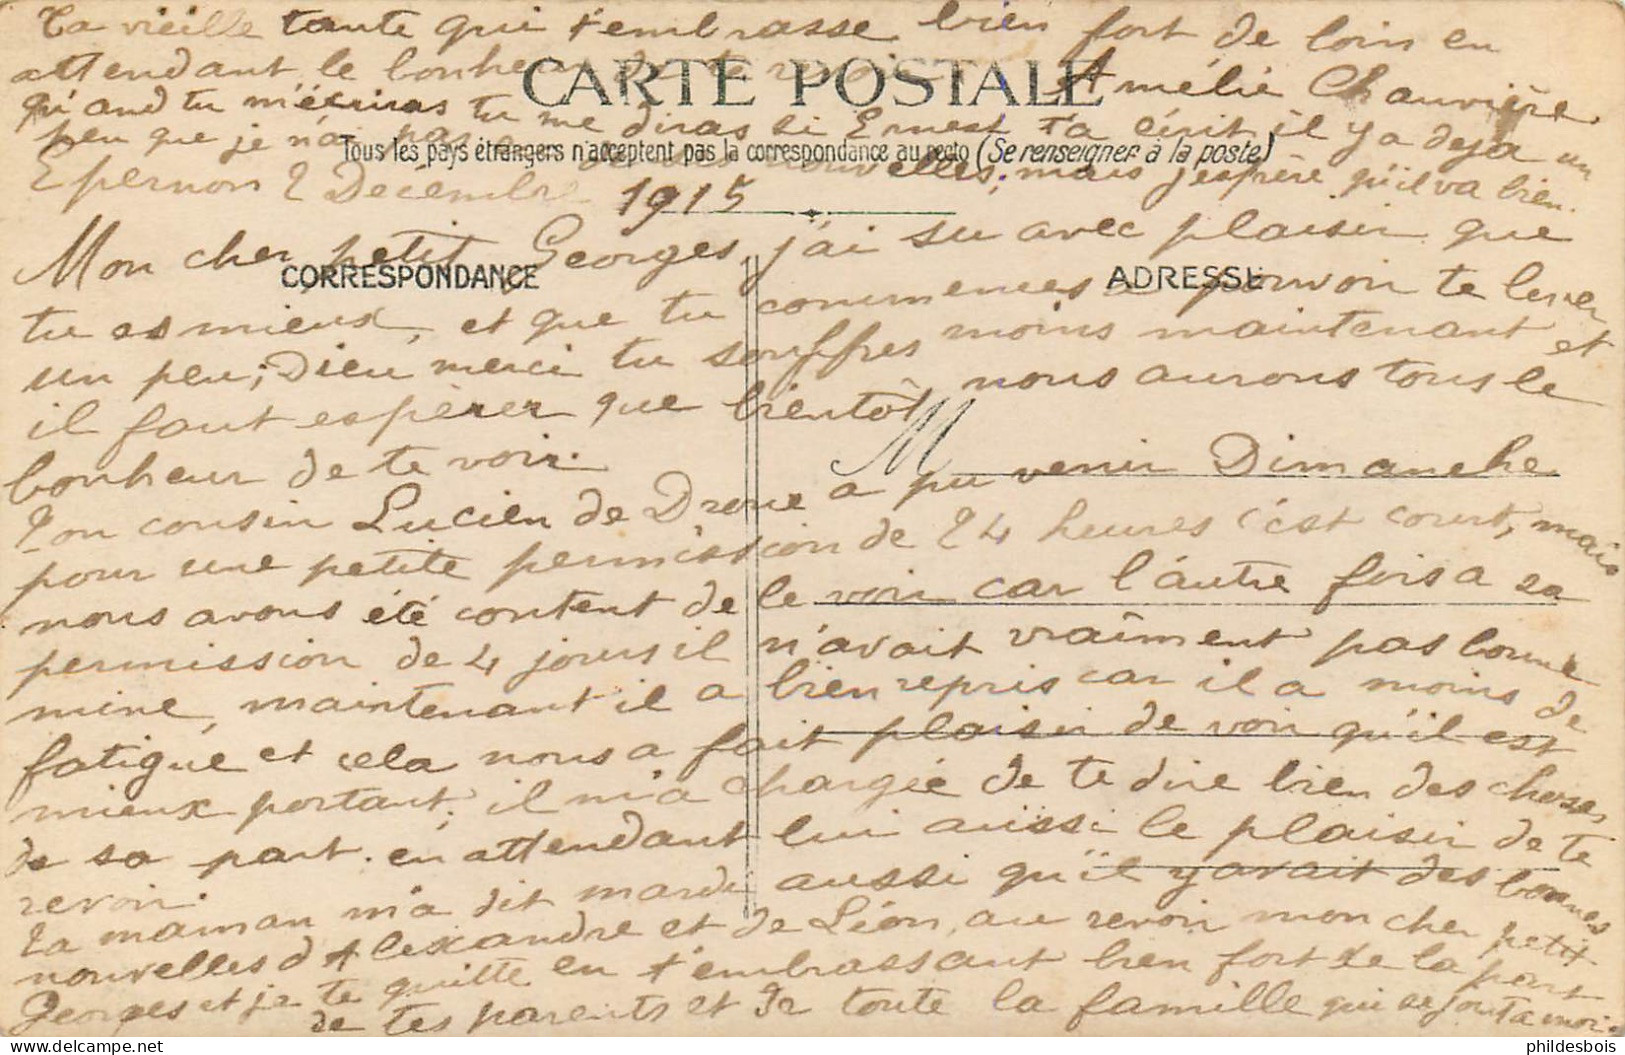 Ta vieille tante qui t'embrasse bien fort de loin en
attendant le bonheur de te revoir Amélie Chauvière
CARTE POSTALE
quand tu m'écriras tu me diras si Ernest t'a écrit il y a deja un
peu que je n'ai pas de ses nouvelles, mais j'espère qu'il va bien.
Tous les pays étrangers n'acceptent pas la correspondance au recto (Se renseigner à la poste)
Epernon 2 Décembre 1915
Mon cher petit Georges, j'ai su avec plaisir que
CORRESPONDANCE
ADRESSE
tu es mieux, et que tu commences a pouvoir te lever
un peu; Dieu merci tu souffres moins maintenant et
il faut espèrer que bientôt nous aurons tous le
bonheur de te voir.
M
Ton cousin Lucien de Droue a pu venir Dimanche
pour une petite permission de 24 heures c'est court, mais
nous avons été content de le voir car l'autre fois a sa
permission de 4 jours il n'avait vraiment pas bonne
mine, maintenant il a bien repris car il a moins de
fatigue et cela nous a fait plaisir de voir qu'il est
mieux portant, il m'a chargée de te dire bien des choses
de sa part. en attendant lui aussi le plaisir de te
revoir.
Ta maman m'a dit mardi aussi qu'il y avait des bonnes
nouvelles d'Alexandre et de Léon, au revoir mon cher petit
Georges et je te quitte en t'embrassant bien fort de la part
de tes parents et de toute la famille qui se joint a moi.
phildesbois